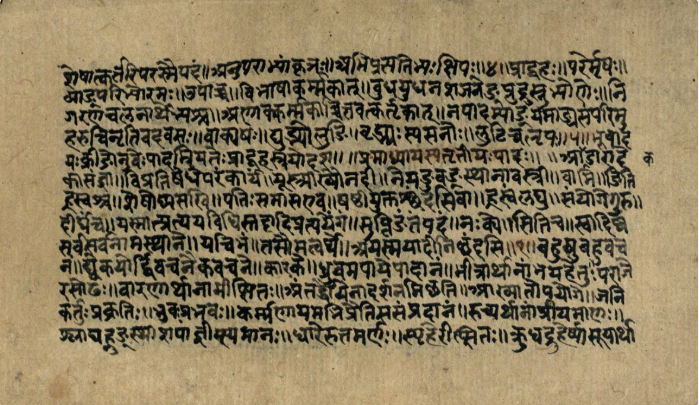 शेषात्कर्तरिपरस्मैपदं॥अनुपराभ्यांकृञः॥अभिप्रत्यतिभ्यःक्षिपः॥४॥प्राद्वहः॥परेर्मृषः॥
व्याङ्परिभ्योरमः॥उपाच्च॥विभाषाकर्म्मकात्॥बुधयुधनशजनेङ्प्रुद्रुस्रुभ्योणेः॥नि
गरणचलनार्थेभ्यश्च॥अणावकर्म्मकाच्चित्तवत्कर्तृकात्॥नपादम्याङ्यमाङ्यसपरिमु
हरुचिनृतिवदवसः॥वाक्यषः॥द्युद्भ्योलुङि॥वृद्भ्यःस्यसनोः॥लुटिचक्लृपः॥५॥भूवाद
यःक्रीडोनुवेःपादम्रियतेःप्राद्वहस्त्रयोदश॥॥प्रथमाध्यायस्यतृतीयःपादः॥॥आकडारादे क
कासंज्ञा॥विप्रतिषेधेपरंकार्यं॥यूस्त्र्याख्यौनदी॥नेयङुवङ्स्थानावस्त्री॥वामि॥ङिति
ह्रस्वश्च॥शेषोघ्यसखि॥पतिःसमासएव॥षष्ठीयुक्तश्छंदसिवा॥ह्रस्वंलघु॥संयोगेगुरु॥
दीर्घंच॥यस्मात्प्रत्ययविधिस्तदादिप्रत्ययेंगं॥सुप्तिङंतंपदं॥नःक्ये॥सितिच॥स्वादिष्व
सर्वसर्वनामस्थाने॥यचिभं॥तसौमत्वर्थे॥अयस्मयादीनिछंदसि॥१॥बहुषुबहुवच
नं॥द्व्येकयोर्द्विवचनैकवचने॥कारके॥ध्रुवमपायेपादानं॥भीत्रार्थानांभयहेतुः॥पराजे
रसोढः॥वारणार्थानामीप्सितः॥अंतर्द्धौयेनादर्शनमिच्छति॥आख्यातोपयोगे॥जनि
कर्तुःप्रकृतिः॥भुवःप्रभवः॥कर्म्मणायमभिप्रैतिससंप्रदानं॥रुच्यर्थानांप्रीयमाणः॥
श्लाघह्नुङ्स्थाशपांज्ञीप्स्यमानः॥धारेरुत्तमर्णः॥स्पृहेरीप्सितः॥क्रुधद्रुहेर्ष्यासूयार्था